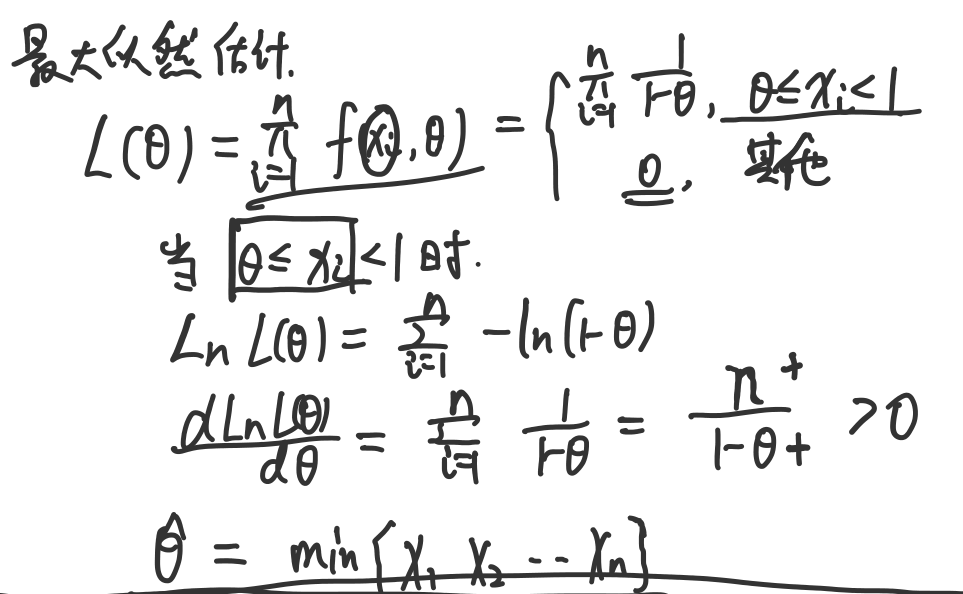 最大似然估计.
L(θ) = ∏_{i=1}^{n} f(x_i, θ) = { ∏_{i=1}^{n} 1/(1-θ), θ ≤ x_i < 1
0, 其他
当 θ ≤ x_i < 1 时.
Ln L(θ) = ∑_{i=1}^{n} -ln(1-θ)
dLnL(θ)/dθ = ∑_{i=1}^{n} 1/(1-θ) = n⁺/(1-θ+) > 0
θ̂ = min{x_1 x_2 -- x_n}